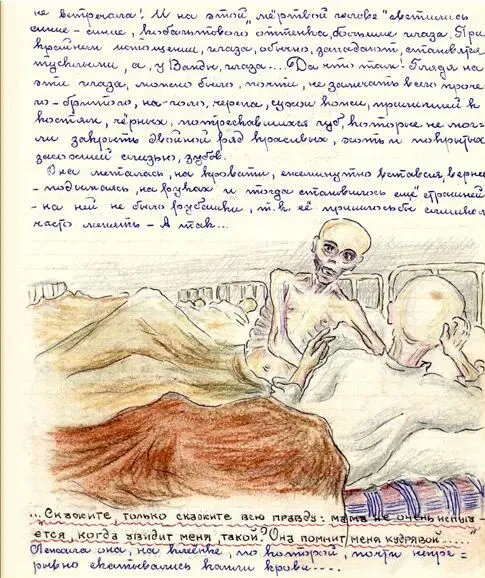 не встречала! И на этой, "мёртвой голове" светились
синие-синие, кобальтового оттенка, большие глаза. При
крайнем истощении, глаза, обычно, западают, становятся
тусклыми, а, у Ванды, глаза... Да что там! Глядя на
эти глаза, можно было, почти, не замечать всего проче-
го - бритого, на-голо, черепа, сухой кожи, прилипшей к
костям, чёрных, потрескавшихся губ, которые не мог-
ли закрыть двойной ряд красивых, хоть и покрытых
засохшей слизью, зубов.
Она металась, на кровати, ежеминутно вставая, вернее
- подымаясь, на руках и тогда становилось ещё страшней
- на ней не было рубашки, т.к. её пришлось бы слишком
часто менять - А так...
... Скажите, только скажите всю правду: мама не очень испуга-
ется, когда увидит меня, такой? Она помнит меня кудрявой....."
Лежала она, на клеёнке, по которой, почти непре=
рывно скатывались капли крови....